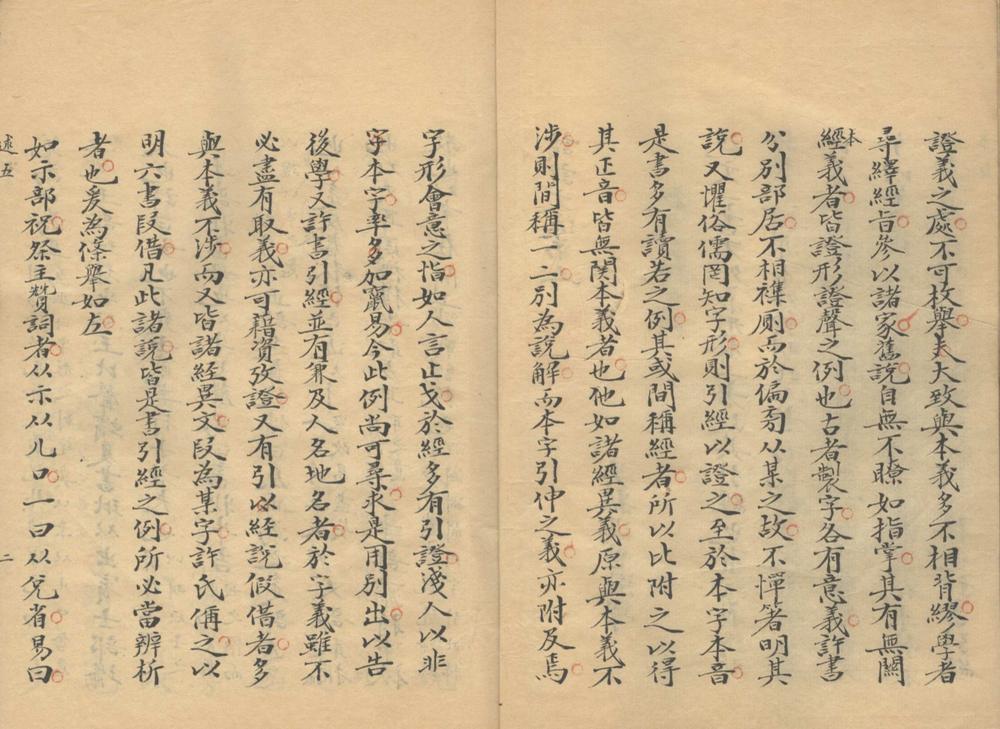 證義之處不可枚舉夫大致與本義多不相背繆學者
尋繹經旨參以諸家舊說自無不瞭如指掌其有無關
經本義者皆證形證聲之例也古者製字各有意義許書
分別部居不相襍厠而於偏旁从某之故不憚箸明其
說又懼俗儒罔知字形則引經以證之至於本字本音
是書多有讀若之例其或間稱經者所以比附之以得
其正音皆無関本義者也他如諸經異義原與本義不
涉則間稱一二別為說解而本字引伸之義亦附及焉
字形會意之恉如人言止戈於經多有引證淺人以非
字本字率多加竄易今此例尚可尋求是用別出以告
後學又許書引經並有兼及人名地名者於字義雖不
必盡有取義亦可藉資攷證又有引以經說假借者多
與本義不涉而又皆諸經異文叚為某字許氏偁之以
明六書叚借凡此諸說皆是書引經之例所必當辨析
者也爰為條舉如左
如示部祝祭主贊詞者从示从儿口一曰从兌省易曰
述五
二